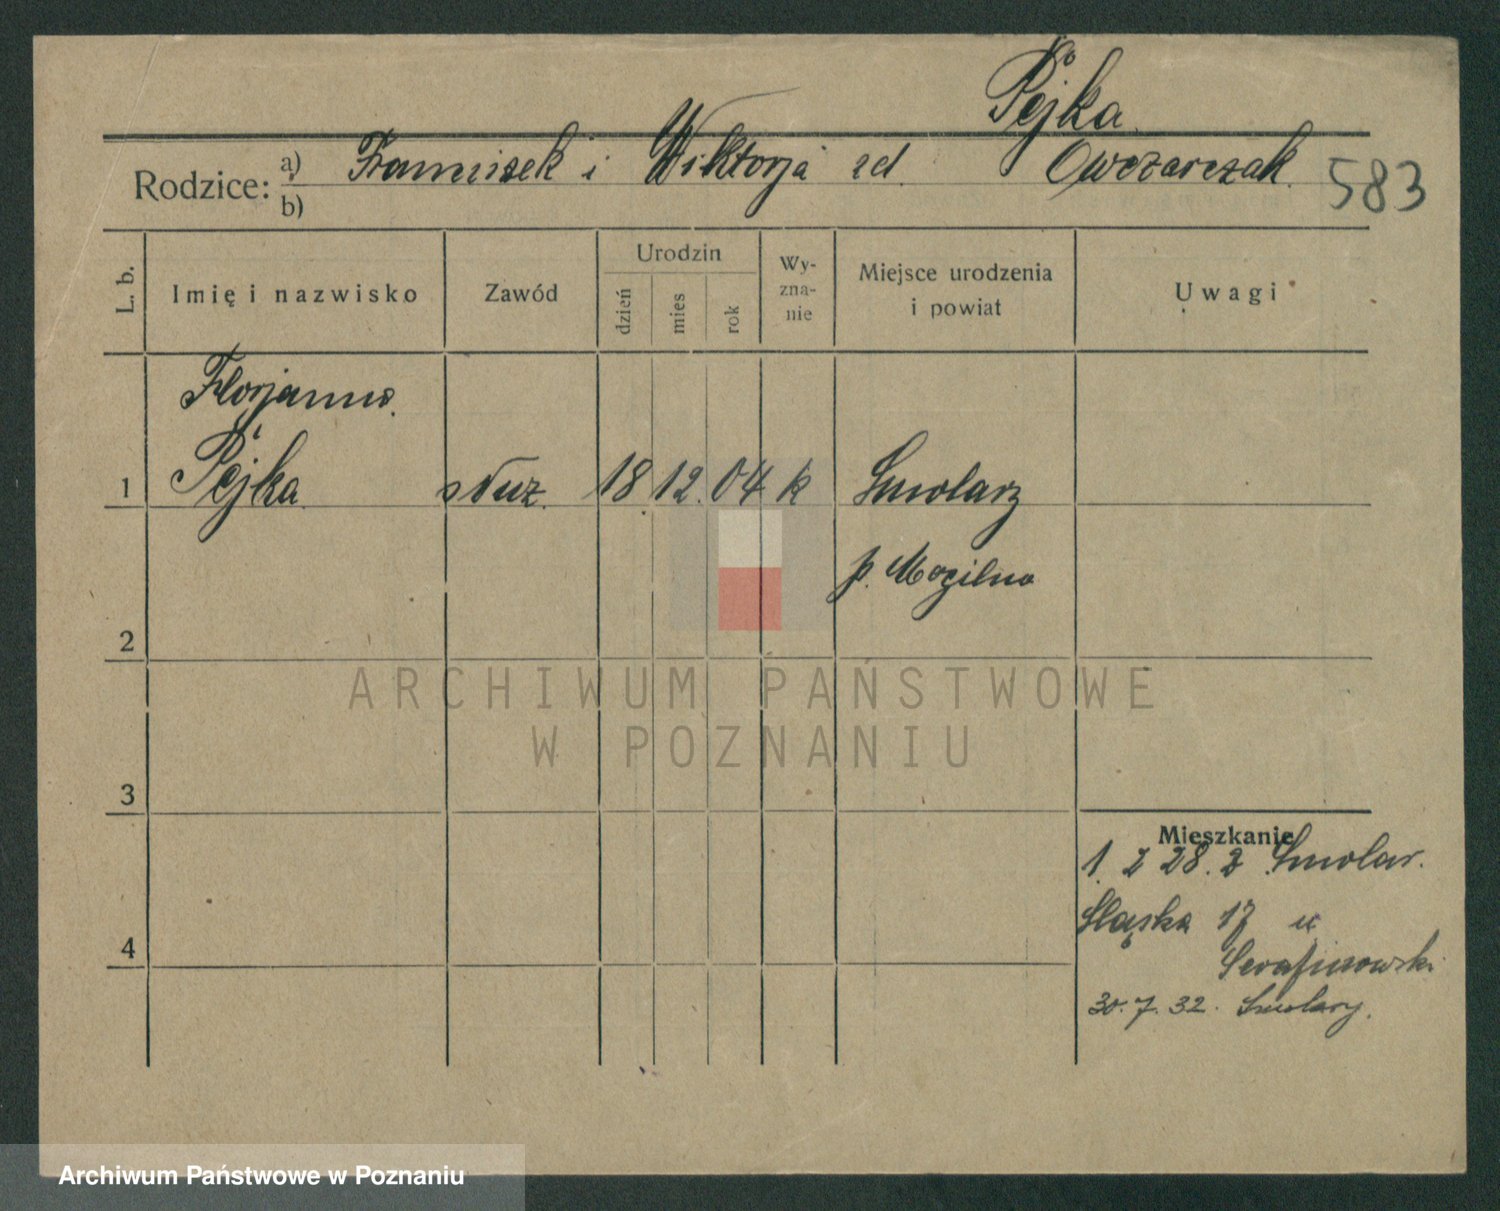 Pejka
Rodzice: a) Franciszek i Wiktorja zd. Owczarczak.
b)
583
L. b.
Imię i nazwisko
Zawód
Urodzin
dzień
mies
rok
Wy-
zna-
nie
Miejsce urodzenia
i powiat
Uwagi
Florjanna
1 Pejka służ. 18 12. 04 k Smolarz
p. Mogilno
2
3
4
Mieszkanie
1. 2 28. z Smolar.
Śląska 17 u
Serafinowski
30. 7. 32. Smolary.
ARCHIWUM PAŃSTWOWE
W POZNANIU
Archiwum Państwowe w Poznaniu